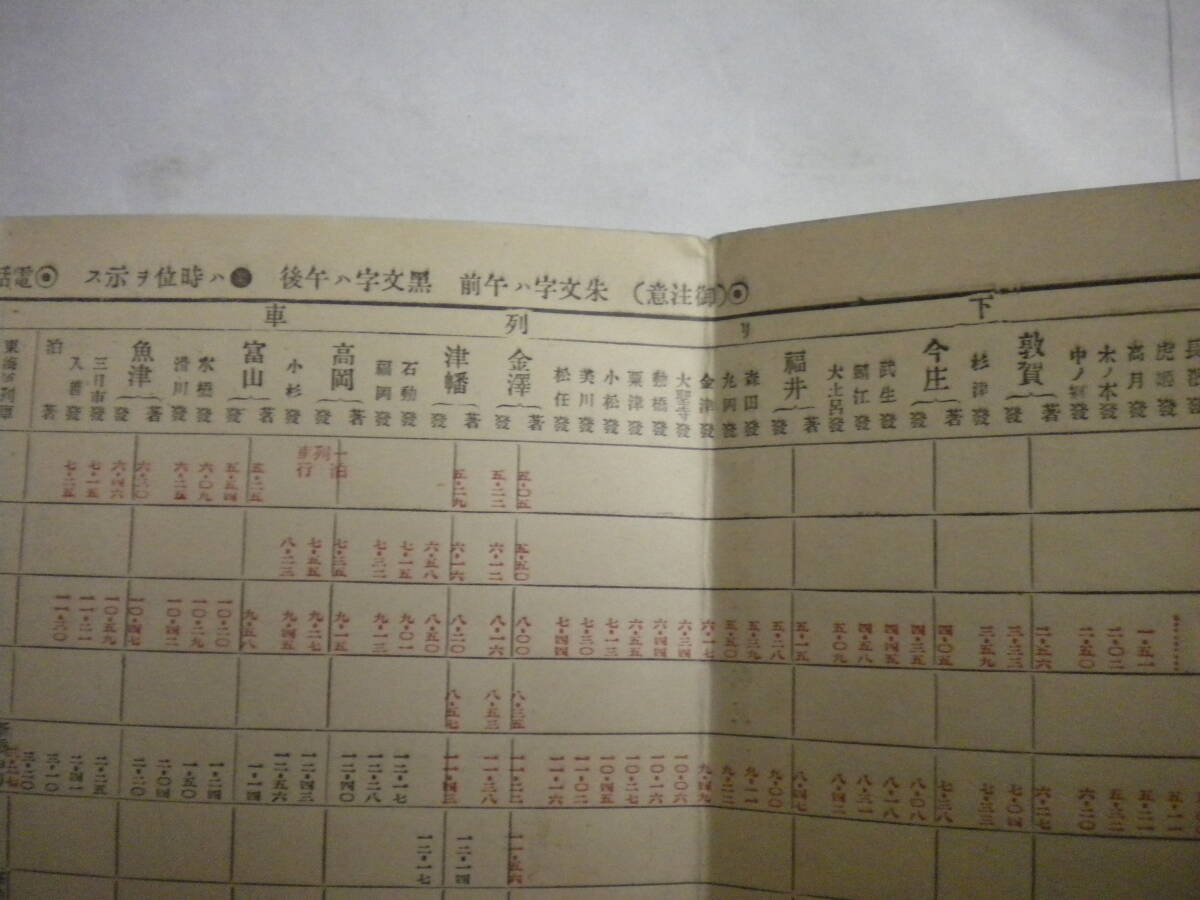 ◉(御注意) 朱文字ハ午前 黑文字ハ午後 ●ハ時位ヲ示ス ◉電話
下リ列車
高月發
木ノ本發
中ノ鄕發
敦賀 著 發
杉津發
今庄 著 發
武生發
鯖江發
大土呂發
福井 著 發
森田發
丸岡發
金津發
大聖寺發
動橋發
粟津發
小松發
美川發
松任發
金澤 著 發
津幡 著 發
石動發
福岡發
高岡 著 發
小杉發
富山 著 發
水橋發
滑川發
魚津 著 發
三日市發
入善發
泊著
泊行列車
五・〇五
五・二二
五・二九
五・二五
五・五四
六・〇九
六・二五
六・三〇
六・四六
七・一五
七・二五
五・五〇
六・一二
六・一六
六・五八
七・一五
七・三二
七・三五
七・五五
八・二三
一・五一
二・〇二
二・五〇
二・五六
三・三三
三・五九
四・〇五
四・三五
四・四四
四・五八
五・〇九
五・一五
五・二八
五・三九
五・五〇
六・一七
六・三四
六・四四
六・五五
七・一三
七・三〇
七・四四
八・〇〇
八・一六
八・二〇
八・五〇
九・〇一
九・一三
九・一五
九・二七
九・四五
九・五八
一〇・二〇
一〇・二九
一〇・四二
一〇・四七
一〇・五九
一一・二一
一一・三〇
八・三五
八・五三
八・五七
五・二一
五・三二
六・二〇
六・二七
七・〇四
七・三三
七・三八
八・〇八
八・一八
八・三一
八・四二
八・四七
九・〇〇
九・一一
九・二二
九・四九
一〇・〇六
一〇・一六
一〇・二七
一〇・四五
一一・〇二
一一・一六
一一・二二
一一・三八
一一・四三
一二・一七
一二・二八
一二・四〇
一二・四三
一二・五六
一・一四
一・二四
一・五〇
二・〇四
二・二〇
二・二五
二・四一
三・一〇
三・二〇
一一・五六
一二・一四
一二・一七